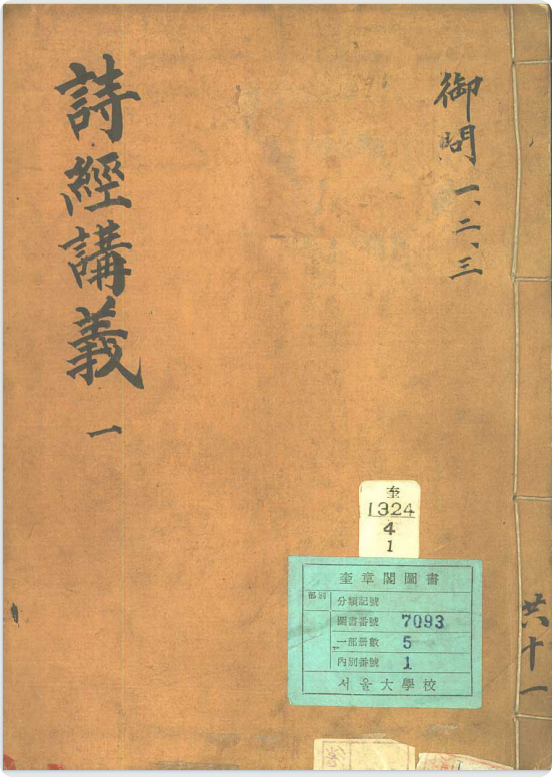 御問 一、二、三
詩經講義 一
共十一
奎
1324
4
1
奎章閣圖書
部別
分類記號
圖書番號 7093
一部册數 5
內別番號 1
서울大學校